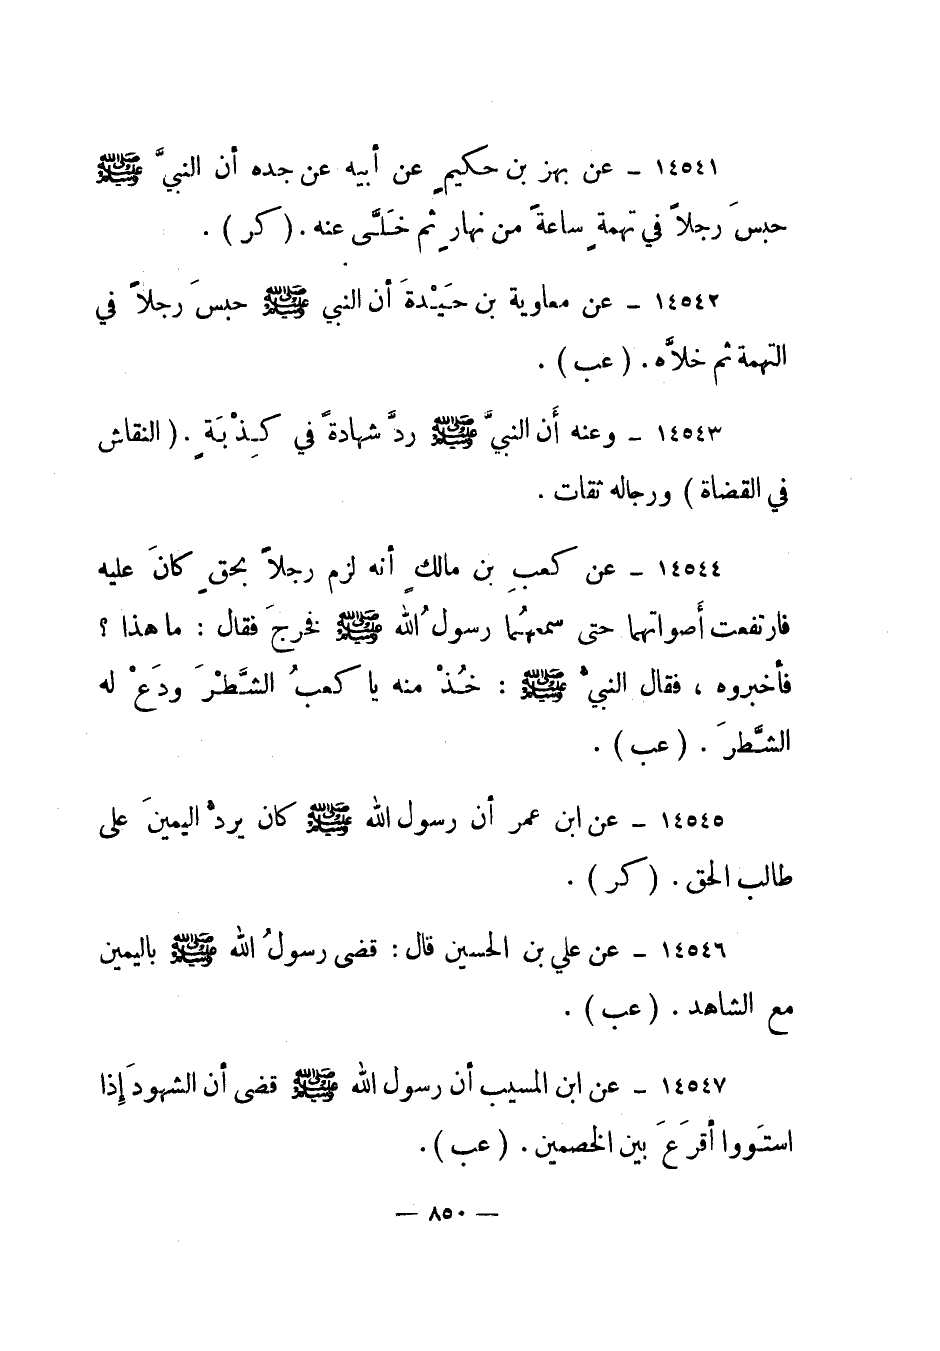 ١٤٥٤١ ـ عن بهز بن حكيمٍ عن أبيه عن جده أن النبيَّ ﷺ
حبسَ رجلاً في تهمةٍ ساعةً من نهارٍ ثم خَلَّى عنه . ( كر ) .
١٤٥٤٢ ـ عن معاوية بن حَيْدةَ أن النبي ﷺ حبسَ رجلاً في
التهمة ثم خلاَّه . ( عب ) .
١٤٥٤٣ ـ وعنه أَن النبيَّ ﷺ ردَّ شهادةً في كِذْبَةٍ . ( النقاش
في القضاة ) ورجاله ثقات .
١٤٥٤٤ ـ عن كعبِ بن مالكٍ أنه لزم رجلاً بحقٍ كانَ عليه
فارتفعت أَصواتهما حتى سمعهُما رسولُ الله ﷺ فخرجَ فقال : ما هذا ؟
فأخبروه ، فقال النبيُّ ﷺ : خُذْ منه يا كعبُ الشَّطْرَ ودَعْ له
الشَّطرَ . ( عب ) .
١٤٥٤٥ ـ عن ابن عمر أن رسول الله ﷺ كان يردُّ اليمينَ على
طالب الحق . ( كر ) .
١٤٥٤٦ ـ عن علي بن الحسين قال : قضى رسولُ الله ﷺ باليمين
مع الشاهد . ( عب ) .
١٤٥٤٧ ـ عن ابن المسيب أن رسول الله ﷺ قضى أن الشهودَ إِذا
استَووا أقرَعَ بين الخصمين . ( عب ) .
— ٨٥٠ —